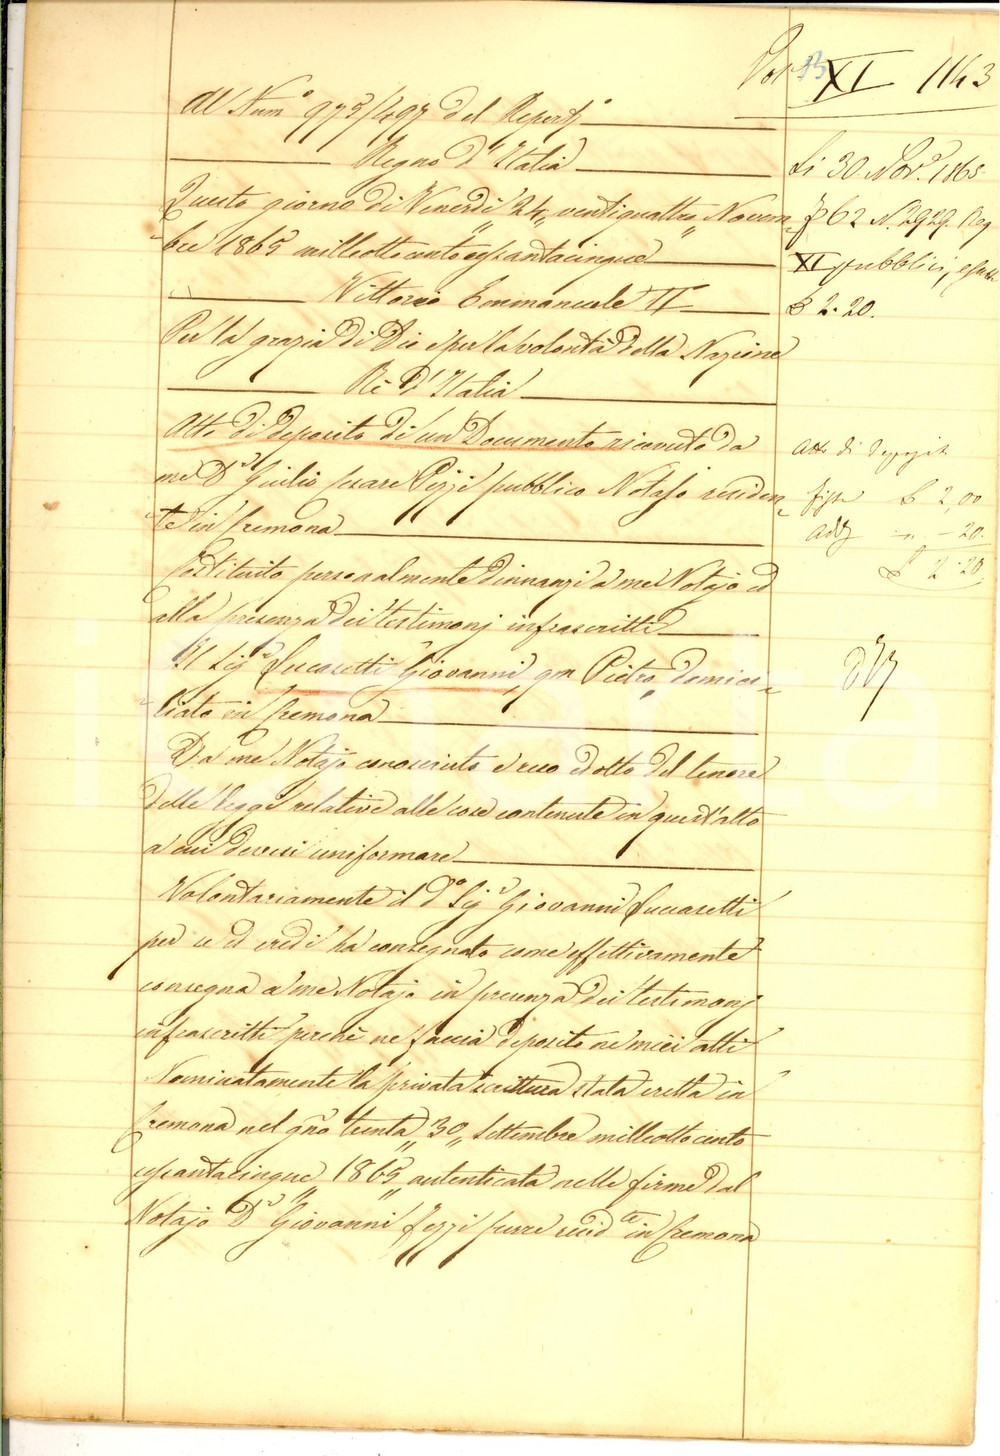 Vol XI 1143
Al Num.° 975/497 del Repert.°
Regno d'Italia
Questo giorno di Venerdì 24,, ventiquattro,, Novem=
=bre 1865 milleottocentosessantacinque
Vittorio Emmanuele II
Per la grazia di Dio e per la volontà della Nazione
Re d'Italia
Atto di deposito di un Documento ricevuto da
me D.r Giulio Cesare Pezzi pubblico Notajo residen=
=te in Cremona
Costituito personalmente dinnanzi a me Notajo ed
alla presenza dei testimonj infrascritti
Il Sig.r Giovanni,, qm Pietro,, domici=
=liato in Cremona
Da me Notajo conosciuto e reso edotto del tenore
delle leggi relative alle cose contenute in quest'atto
a cui devesi uniformare
Volontariamente il d.° Sig.r Giovanni
per se ed eredi ha consegnato come effettivamente
consegna a me Notajo in presenza dei testimonj
infrascritti perchè ne faccia deposito ne' miei atti
Nominatamente la privata scrittura stata eretta in
Cremona nel gno trenta,, 30,, Settembre milleottocento
sessantacinque 1865,, autenticata nelle firme dal
Notajo D.r Giovanni pure resid.te in Cremona
Li 30 Nov.e 1865
f 62 N. 2929. Reg
XI pubblici, esatte
£ 2.20.
Atto di deposito
fissa £ 2,00
Add " - 20.
£ 2.20